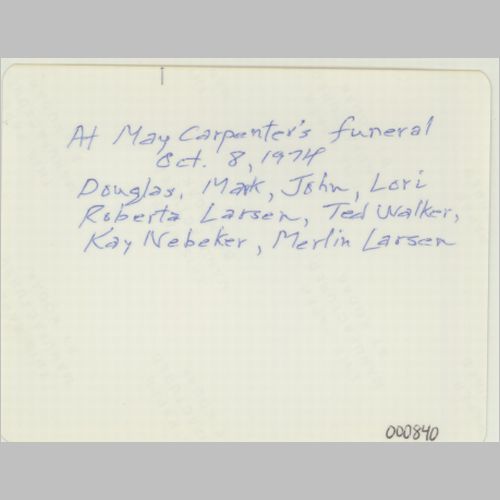 At May Carpenter's funeral
Oct. 8, 1974
Douglas, Mark, John, Lori
Roberta Larsen, Ted Walker,
Kay Nebeker, Merlin Larsen
000840